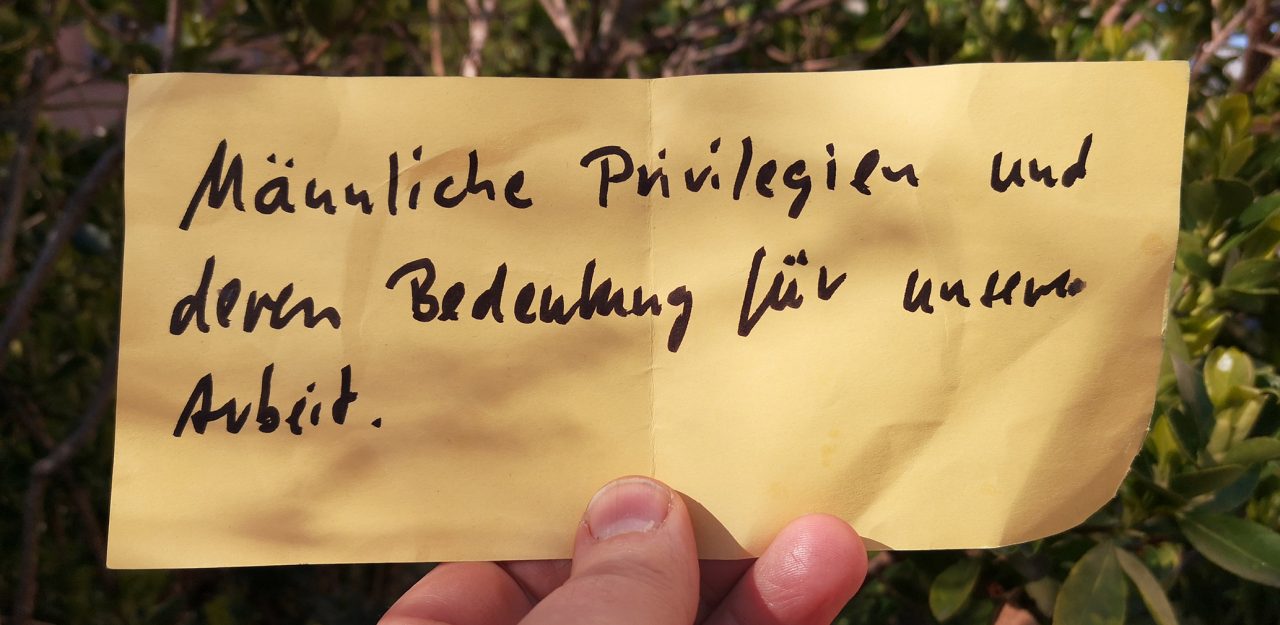 Männliche Privilegien und
deren Bedeutung für unsere
Arbeit.